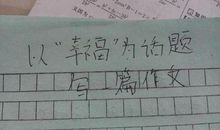 以“幸福”为话题
写一篇作文